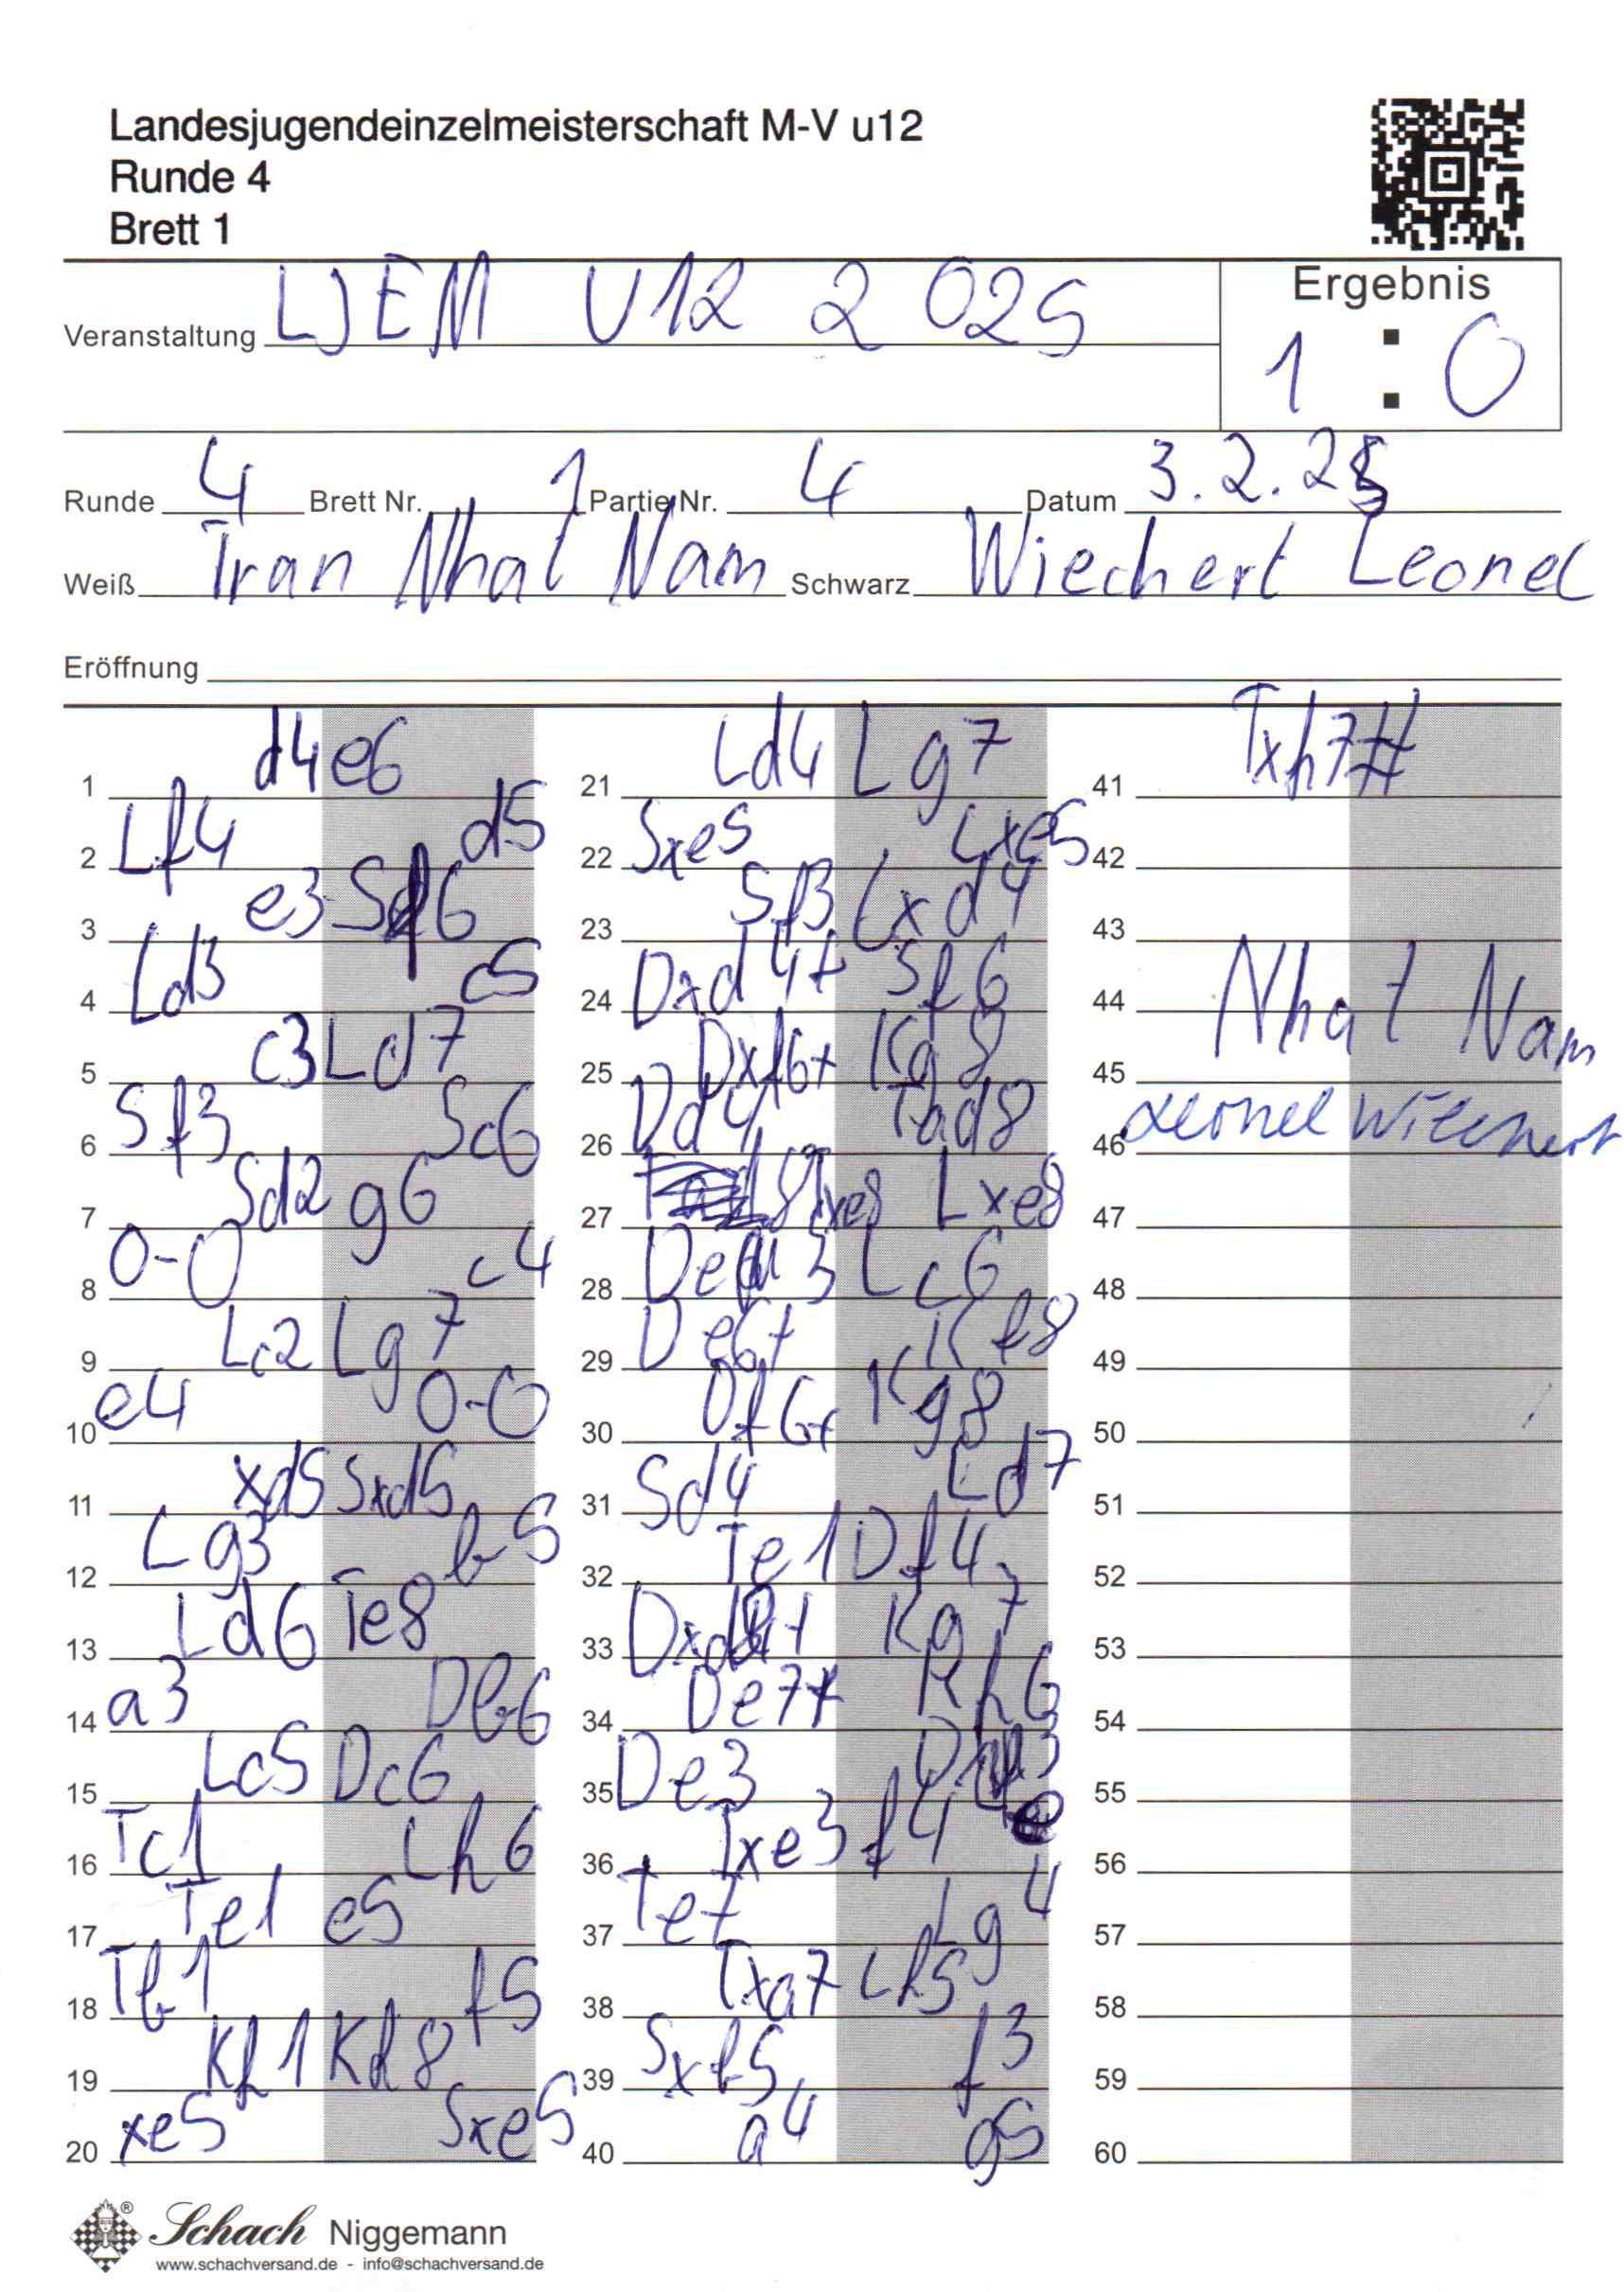 Landesjugendeinzelmeisterschaft M-V u12
Runde 4
Brett 1
Veranstaltung LJEM U12 2025
Ergebnis
1 : 0
Runde 4 Brett Nr. 1 Partie Nr. 4 Datum 3.2.25
Weiß Tran Nhat Nam Schwarz Wiechert Leonel
Eröffnung
1 d4 e6
2 Lf4 d5
3 e3 Sf6
4 Ld3 c5
5 c3 Ld7
6 Sf3 Sc6
7 Sd2 g6
8 0-0 c4
9 Lc2 Lg7
10 e4 0-0
11 xd5 Sxd5
12 Lg3 b5
13 Ld6 Te8
14 a3 Db6
15 Lc5 Dc6
16 Tc1 Lh6
17 Te1 e5
18 Tb1 f5
19 Kh1 Kh8
20 xe5 Sxe5
21 Ld4 Lg7
22 Sxe5 Lxe5
23 Sf3 Lxd4
24 Dxd4+ Sf6
25 Dxf6+ Kg8
26 Dd4 Tad8
27 Txe8 Lxe8
28 De3 Lc6
29 De6+ Kf8
30 Df6+ Kg8
31 Sd4 Ld7
32 Te1 Df4
33 Dxd8+ Kg7
34 De7+ Kh6
35 De3
36 Txe3 f4
37 Te7 Lg4
38 Txa7 Lh5
39 Sxb5 f3
40 a4 g5
41 Txh7#
42
43
44 Nhat Nam
45
46 Leonel Wiechert
47
48
49
50
51
52
53
54
55
56
57
58
59
60
Schach Niggemann
www.schachversand.de - info@schachversand.de